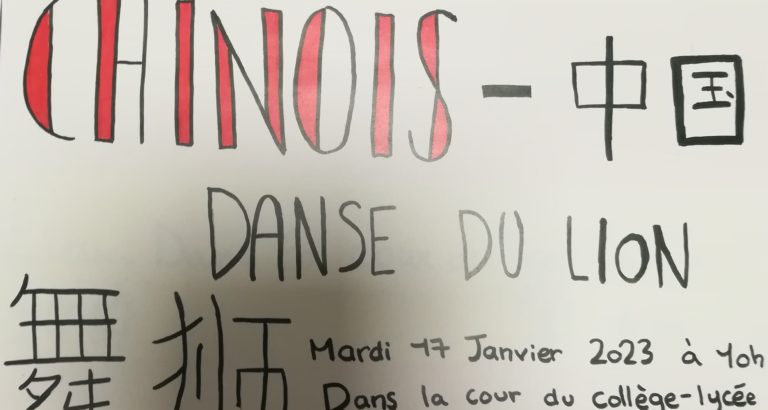 CHINOIS - 中国
DANSE DU LION
舞狮
Mardi 17 Janvier 2023 à 10h
Dans la cour du collège-lycée